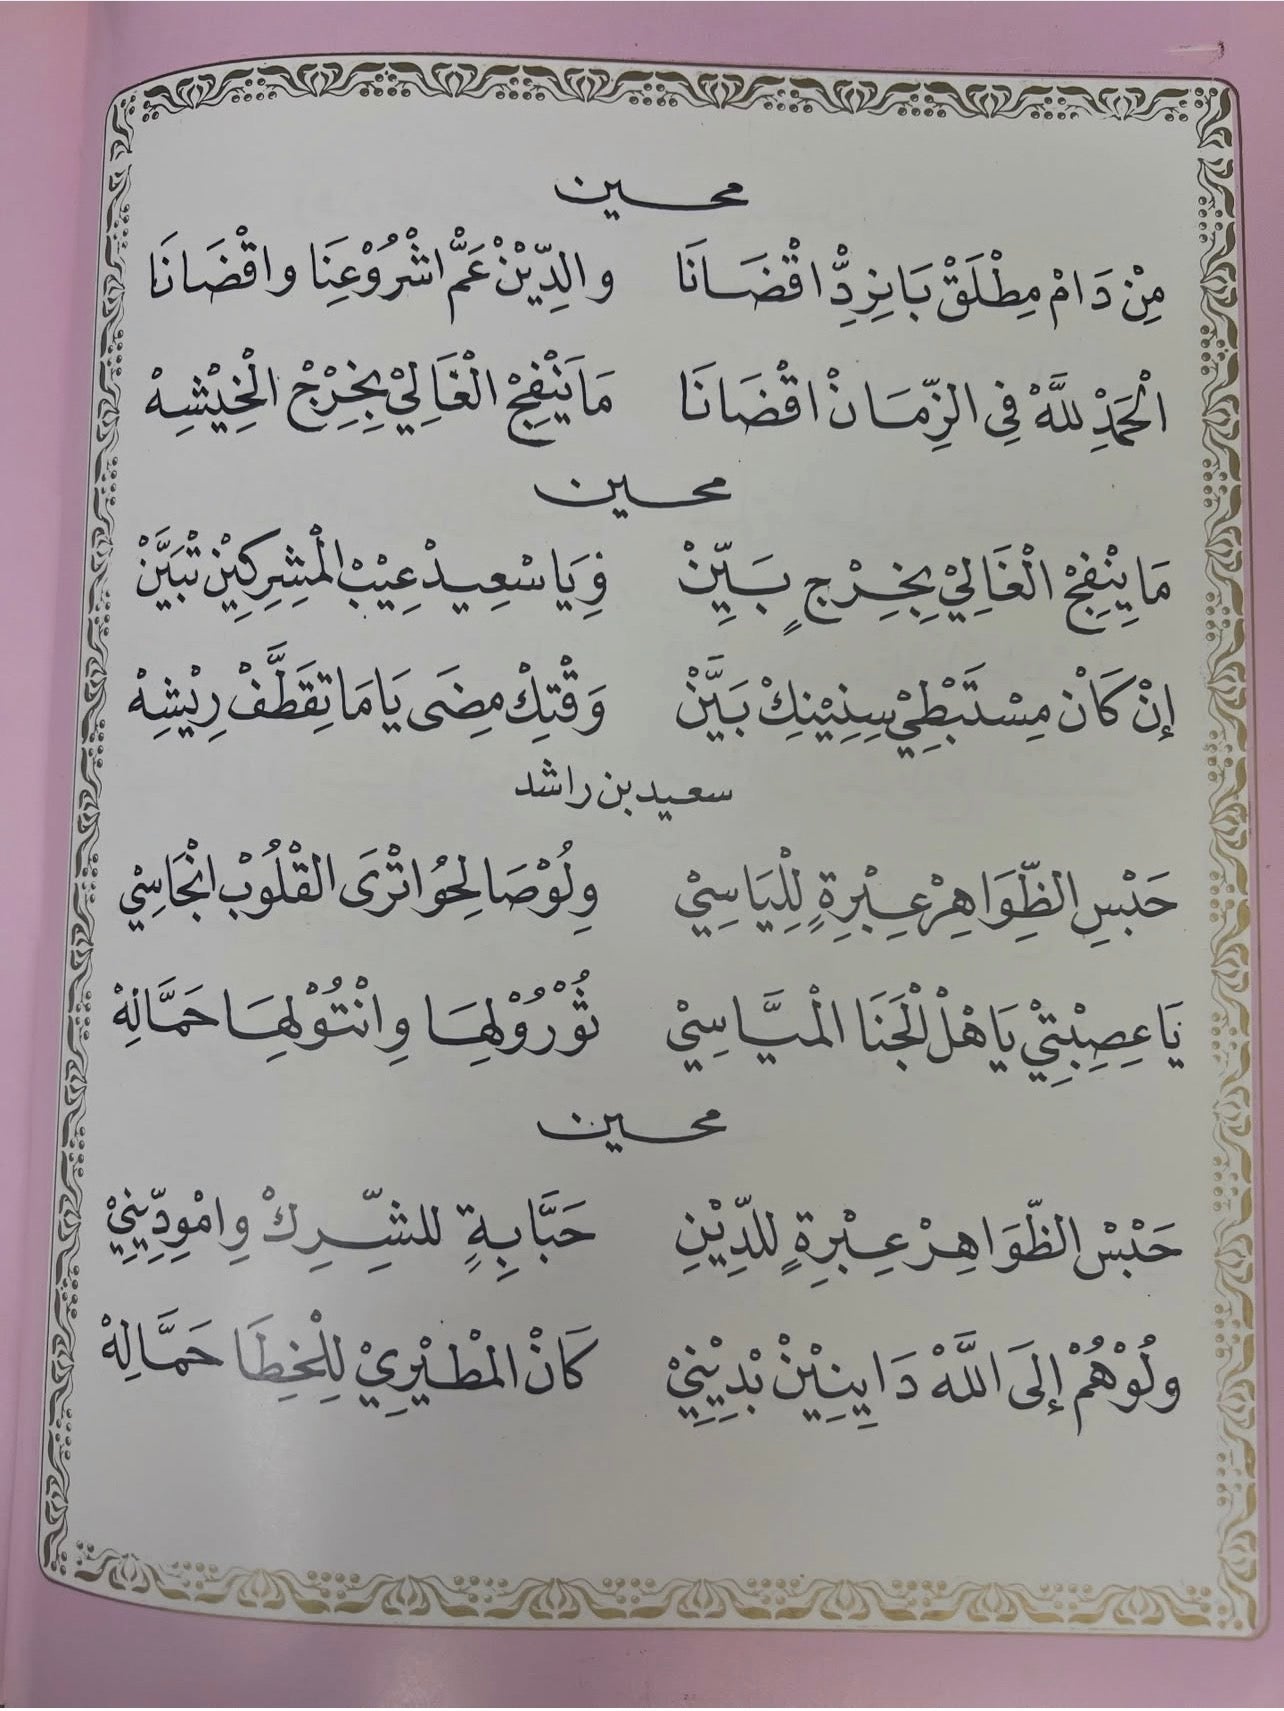 محسين
مِنْ دَامْ مِطْلَقْ بَانِرِدّْ اقْضَانَا والدِّيْنْ عَمّْ اشْرُوْعِنَا واقْضَانَا
الْحَمَدْ للَّهْ فِي الزِّمَانْ اقْضَانَا مَا يَنْفِجْ الْغَالِيْ بِخِرْجْ الْخِيْشِهْ
محسين
مَا يِنْفِجْ الْغَالِيْ بِخِرْجٍ بَيِّنْ وِيَا سْعِيدْ عِيْبْ الْمِشِرِكِيْنْ تْبَيَّنْ
إنْ كَانْ مِسْتَبْطِيْ سِنِيْنِكْ بَيَّنْ وَقْتِكْ مِضَى يَامَا تِقَطَّفْ رِيْشِهْ
سعيد بن راشد
حَبْسِ الظِّوَاهِرْ عِبْرِةٍ لِلْيَاسِيْ وِلُوْ صَالِحُوا تْرَى القْلُوبْ انْجَاسِيْ
يَا عِصِبْتِيْ يَا هْلْ الْجَنَا الْمَيَّاسِيْ ثُوْرُوْلِهَا وِانْتُوْلِهَا حَمَّالِهْ
محسين
حَبْسْ الظِّوَاهِرْ عِبْرِةٍ للدِّيْنِ حَبَّابِةٍ للشِّرِكْ وِامْوِدِّيْنِيْ
ولُوْهُمْ إلَى اللَّهْ دَايِنِيْنْ بْدِيْنِيْ كَانْ المْطيْرِيْ لِلْخِطَا حَمَّالِهْ